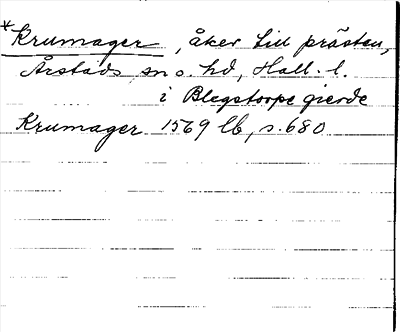 *Krumager, åker till prästen,
Årstads sn o. hd, Hall. l.
i Blegstorpe gierde
Krumager 1569 lb, s. 680